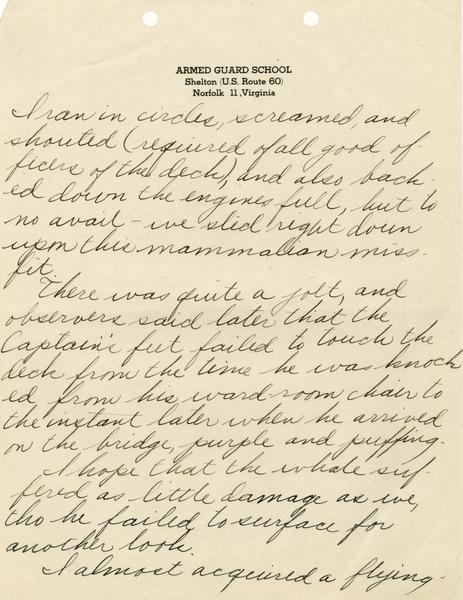 ARMED GUARD SCHOOL
Shelton (U.S. Route 60)
Norfolk 11, Virginia
I ran in circles, screamed, and
shouted (required of all good of-
ficers of the deck), and also back-
ed down the engines full, but to
no avail - we slid right down
upon this mammalian miss-
fit.
There was quite a jolt, and
observers said later that the
Captain's feet failed to touch the
deck from the time he was knock
ed from his ward-room chair to
the instant later when he arrived
on the bridge, purple and puffing.
I hope that the whale suf-
fered as little damage as we,
tho he failed to surface for
another look.
I almost acquired a flying-